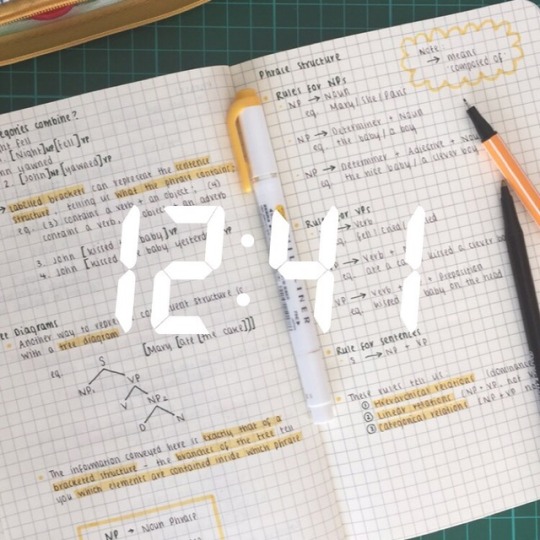 categories combine?
[Night]NP[fell]VP
John yawned
2. [John]NP[yawned]VP
Labelled bracket can represent the sentence
structure - telling us what the phrase contains
eg. (3) contains a verb + an object; (4)
contains a verb, an object, an adverb
3. John [kissed baby]VP
4. John [kissed baby yesterday]VP
Tree Diagrams
Another way to constituent structure is
with a tree diagram
[Mary [ate [the cake]]]
eg.
S
NP VP
V NP
D N
The information conveyed here is exactly that of a
bracketed structure - the branches of the tree tell
you which elements are contained inside which phrase
NP → Noun Phrase
Phrase Structure
Note
→ means
composed of
Rules for NPs
NP → Noun
eg. Mary/she/Paris
NP → Determiner + Noun
eg. the baby/a boy
NP → Determiner + Adjective + Noun
eg. the nice baby/a clever boy
Rules for VPs
Verb
fell/
Verb +
eg. ate a kissed a clever
VP → Verb + Preposition
kissed baby on the head
Rule for sentences
S → NP + VP
These rules tell us
① Hierarchical relations (dominance
② Linear relations (NP + VP, not
③ Categorical relations (NP + VP not
12:41